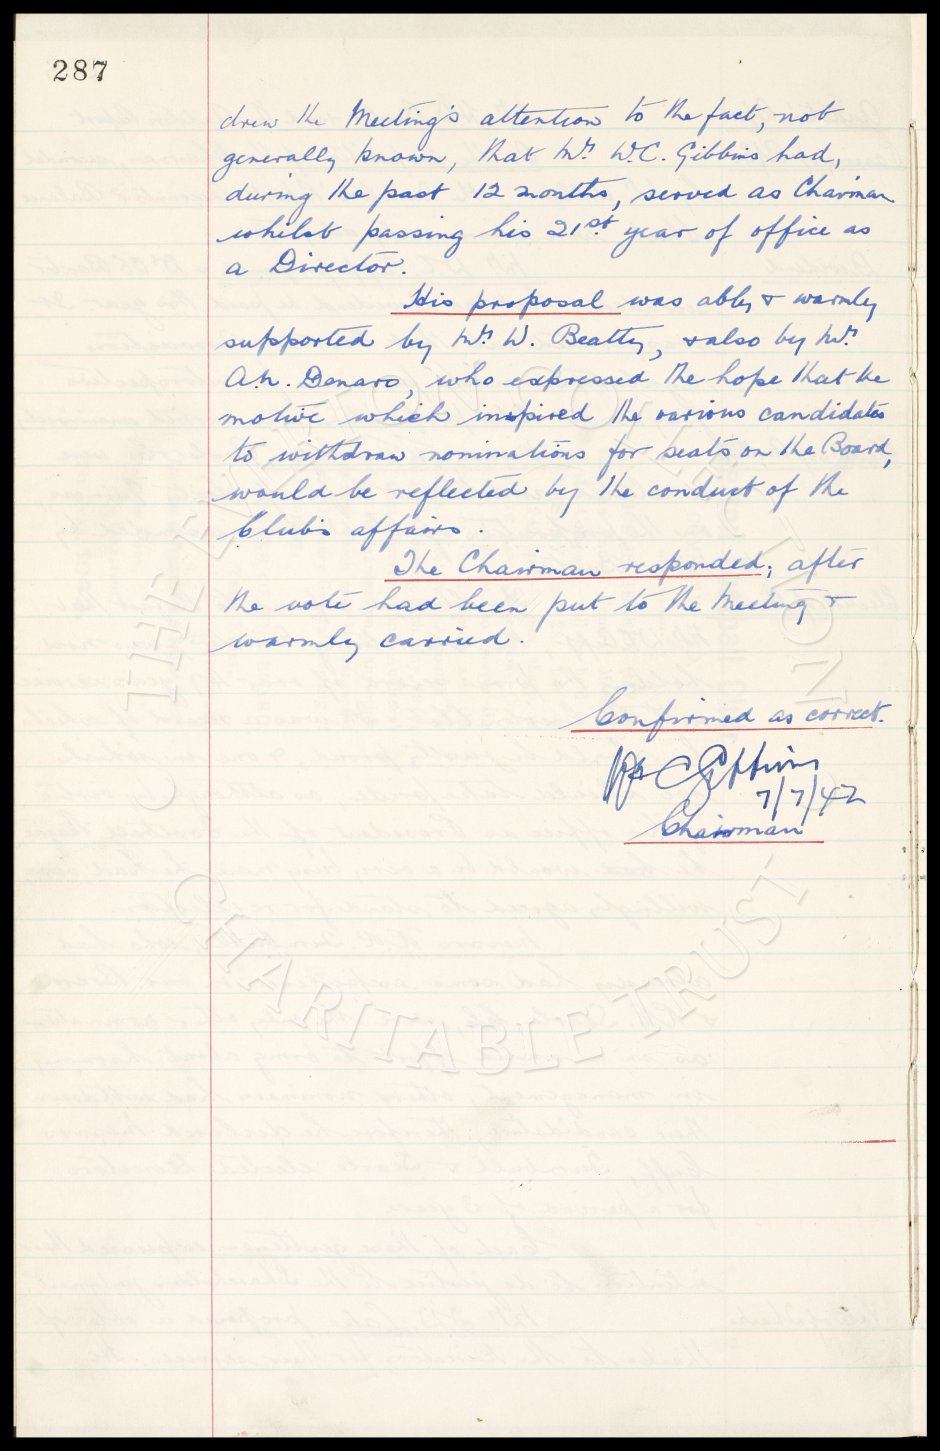 287
drew the Meeting's attention to the fact, not
generally known, that Mr. W.C. Gibbins had,
during the past 12 months, served as Chairman
whilst passing his 21st. year of office as
a Director.
His proposal was ably & warmly
supported by Mr. W. Beatty, & also by Mr.
A.N. Denaro, who expressed the hope that the
motive which inspired the various candidates
to withdraw nominations for seats on the Board,
would be reflected by the conduct of the
Club's affairs.
The Chairman responded; after
the vote had been put to the Meeting &
warmly carried.
Confirmed as correct.
W C Gibbins
7/7/42
Chairman
CHARITABLE TRUST